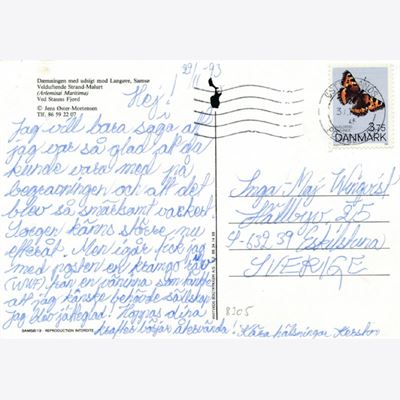 Dæmningen med udsigt mod Langøre, Samsø
Velduftende Strand-Malurt
(Artemisai Maritima)
Ved Stauns Fjord
© Jens Øster-Mortensen
Tlf. 86 59 22 07
29/1-93
Hej!
Jag vill bara säga att
jag var så glad att du
kunde vara med på
begravningen och att det
blev så smärtsamt vackert.
Sorgen känns större nu
efteråt. Men igår fick jag
med posten en
(WWF) från en väninna som
att jag kanske behövde sällskap.
Jag blev jätteglad! Hoppas dina
krafter börjar återvända! Kära hälsningar
3.75
DANMARK
Inga-Maj
Hällbyv 25
S-632 39 Eskilstuna
SVERIGE
8305
SAMSØ 19 - REPRODUCTION INTERDITE